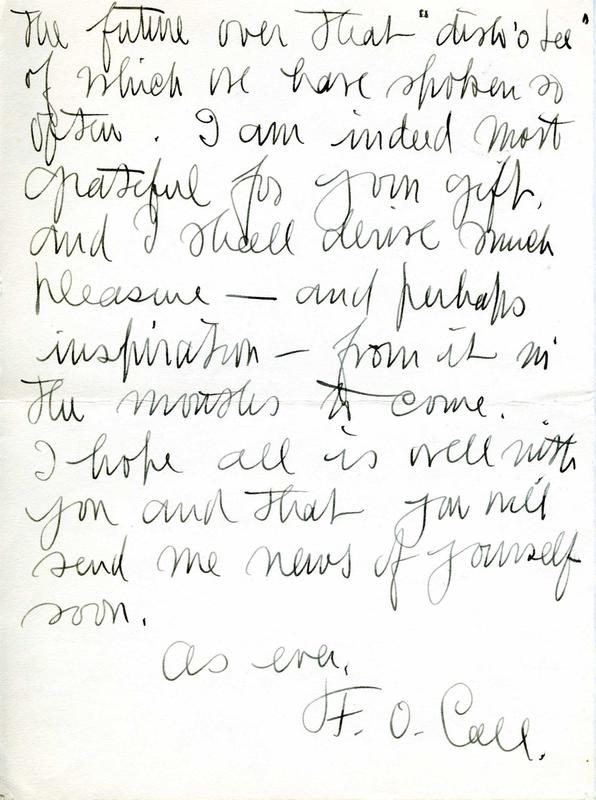 the future over that "dish o' tea"
of which we have spoken so
often. I am indeed most
grateful for your gift,
and I shall derive much
pleasure — and perhaps
inspiration — from it in
the months to come.
I hope all is well with
you and that you will
send me news of yourself
soon.
As ever,
F. O. Call.